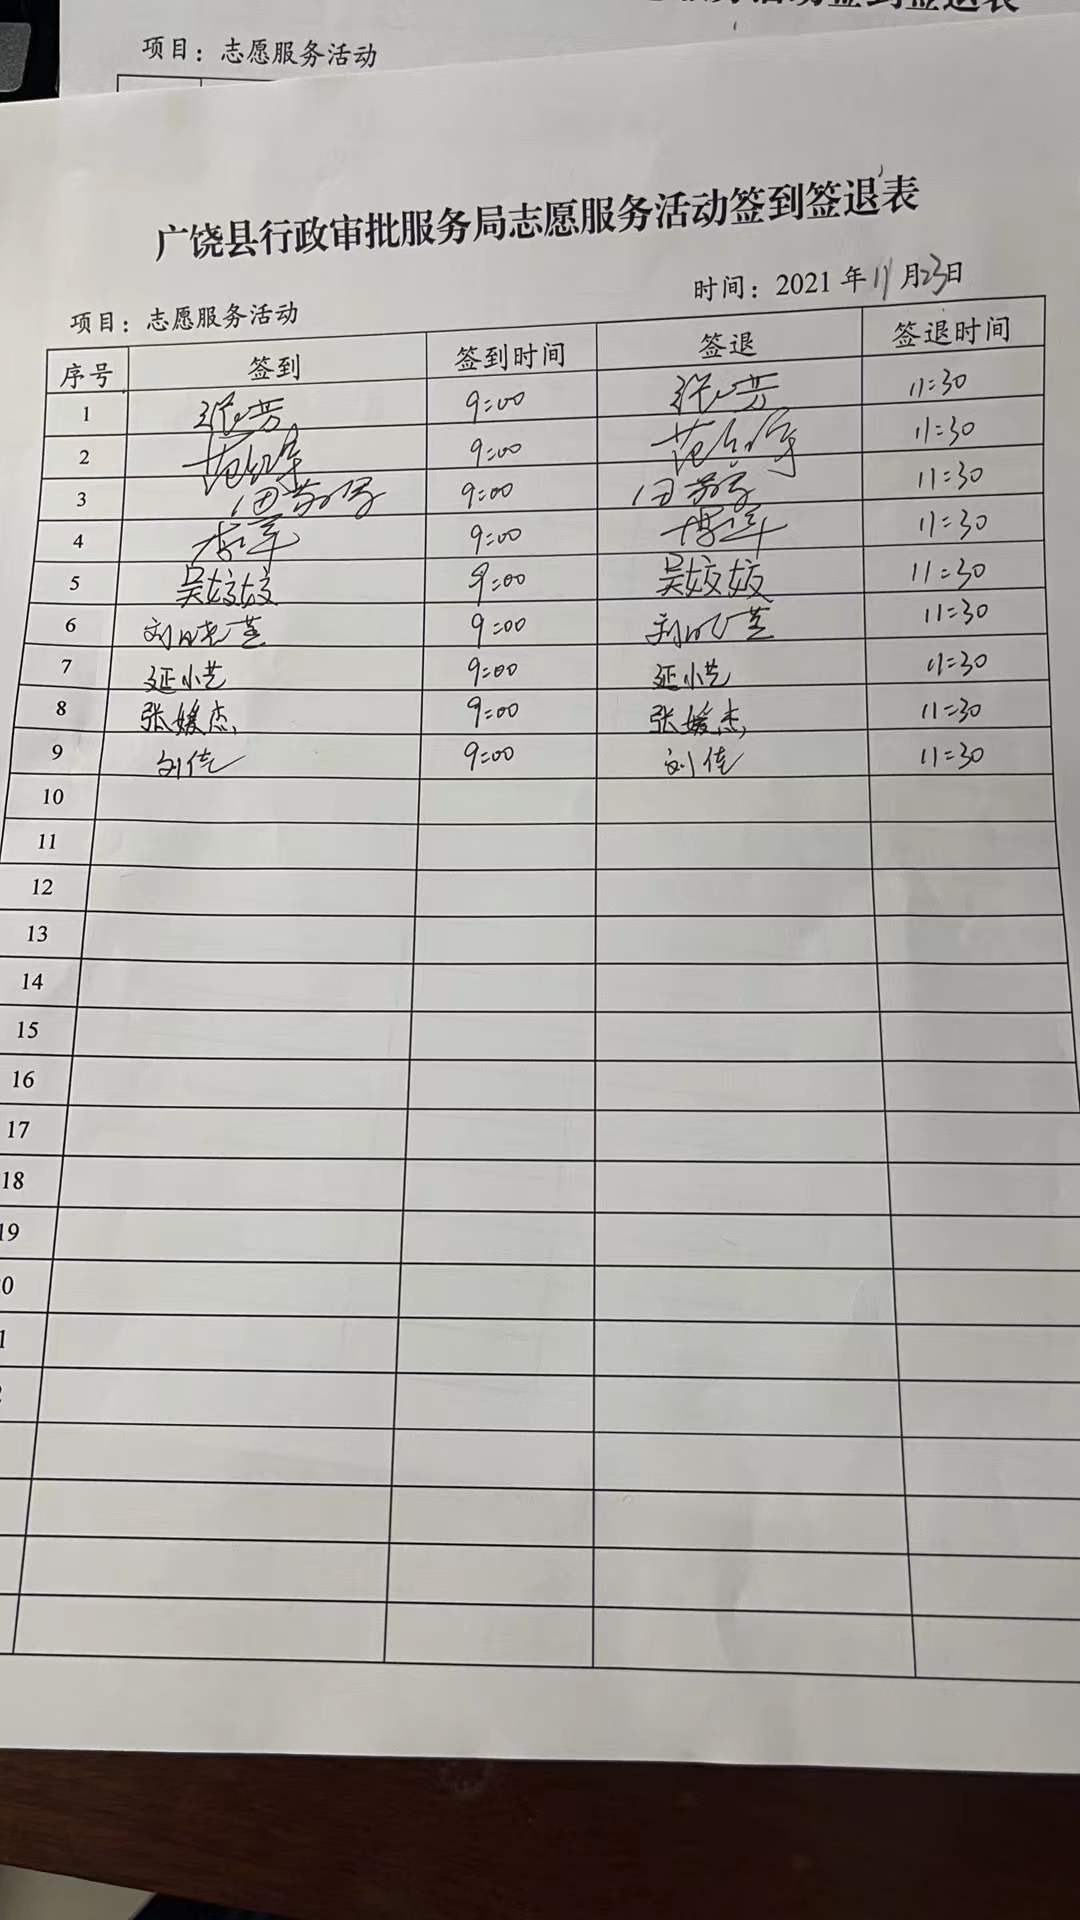 项目：志愿服务活动
广饶县行政审批服务局志愿服务活动签到签退表
时间：2021年11月23日
项目：志愿服务活动
序号 签到 签到时间 签退 签退时间
1 9:00 11:30
2 9:00 11:30
3 9:00 11:30
4 9:00 11:30
5 吴姣姣 9:00 吴姣姣 11:30
6 9:00 11:30
7 延小艺 9:00 延小艺 11:30
8 张媛杰 9:00 张媛杰 11:30
9 刘佳 9:00 刘佳 11:30
10
11
12
13
14
15
16
17
18
19
0
1